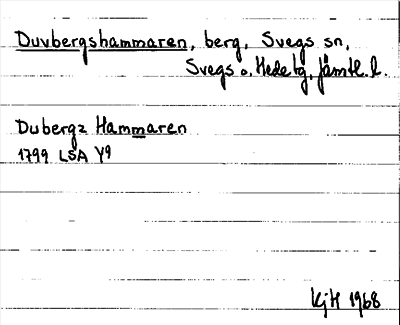 Duvbergshammaren, berg, Svegs sn,
Svegs o. Hede tg, Jämtl. l.
Dubergz Hammaren
1799 LSA Y9
KjH 1968